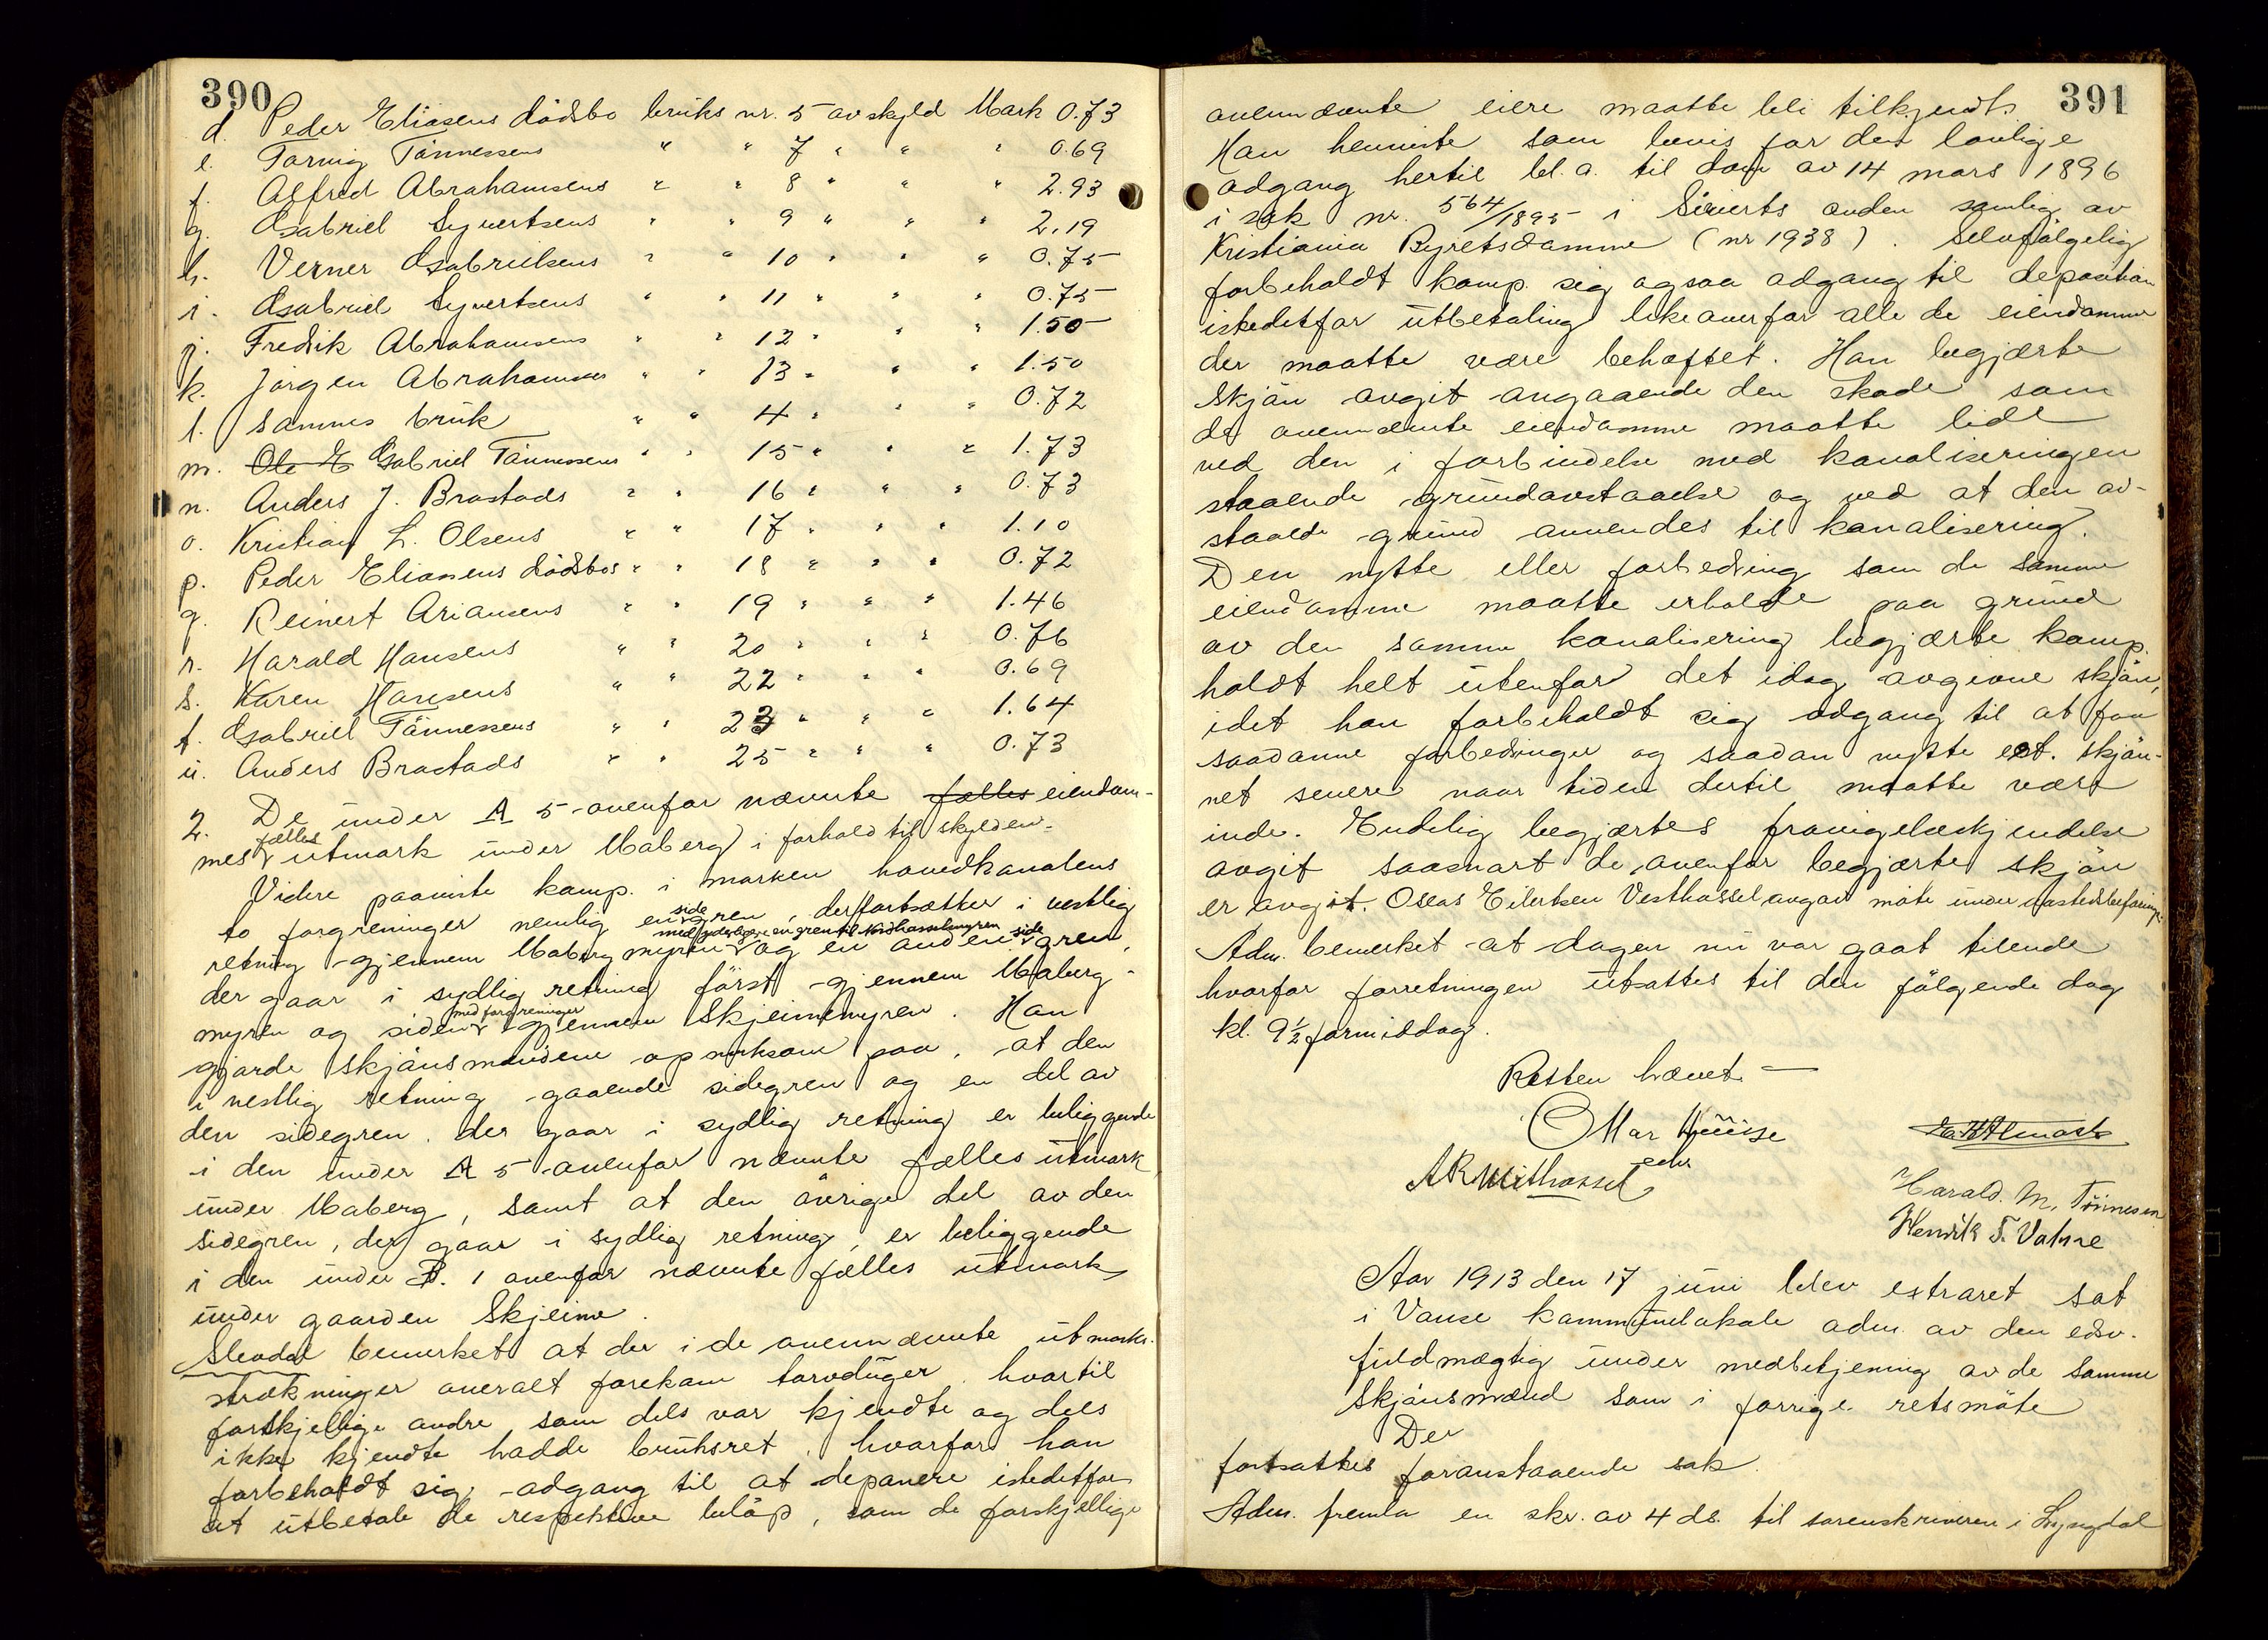 390
d. Peder Eliasens dödsbo bruks nr. 5 av skyld Mark 0.73
e. Tarmig Tönnessens " " 7 " " " 0.69
f. Alfred Abrahamsens " " 8 " " " 2.93
g. Gabriel Syvertsens " " 9 " " " 2.19
h. Verner Gabrielsens " " 10 " " " 0.75
i. Gabriel Syvertsens " " 11 " " " 0.75
j. Fredrik Abrahamsens " " 12 " " " 1.50
k. Jörgen Abrahamsens " " 13 " " " 1.50
l. Sammes bruk " " 4 " " " 0.72
m. Ole E Gabriel Tönnessens " " 15 " " " 1.73
n. Anders J. Brastads " " 16 " " " 0.73
o. Kristian L. Olsens " " 17 " " " 1.10
p. Peder Eliasens dödsbos " " 18 " " " 0.72
q. Reinert Ariansens " " 19 " " " 1.46
r. Harald Hansens " " 20 " " " 0.76
s. Karen Hansens " " 22 " " " 0.69
t. Gabriel Tönnessens " " 23 " " " 1.64
u. Anders Brastads " " 25 " " " 0.73
2. De under A 5 ovenfor nævnte fælles eiendom-
mes fælles utmark under Maberg i forhold til skylden.
Videre paaviste komp. i marken hovedkanalens
to forgreninger nemlig en sidegren, der fortsætter i vestlig
retning gjennem Maberg myren med yderligere en gren til Nordhasselmyren og en anden sidegren,
der gaar i sydlig retning först gjennem Maberg-
myren og siden med forgreninger gjennem Skjeimemyren. Han
gjorde skjönsmændene opmerksom paa, at den
i vestlig retning gaaende sidegren og en del av
den sidegren, der gaar i sydlig retning er beliggende
i den under A 5 ovenfor nævnte fælles utmark
under Maberg, samt at den övrige del av den
sidegren, der gaar i sydlig retning, er beliggende
i den under B. 1 ovenfor nævnte fælles utmark
under gaarden Skjeime.
Slevdal bemerket at der i de ovennævnte utmarks-
strækninger overalt forekom torvduger, hvortil
forskjellige andre som dels var kjendte og dels
ikke kjendte hadde bruksret, hvorfor han
forbeholdt sig adgang til at deponere istedetfor
at utbetale de respektive belöp, som de forskjellige
391
ovennævnte eiere maatte bli tilkjendt.
Han henviste som bevis for den lovlige
adgang hertil bl. a. til dom av 14 mars 1896
i sak nr. 564/1895 i Siverts anden samlig av
Kristiania Byretsdomme (nr 1938). Selvfölgelig
forbeholdt komp. sig ogsaa adgang til deposition
istedetfor utbetaling likeoverfor alle de eiendomme
der maatte være behæftet. Han begjærte
skjön avgit angaaende den skade som
de ovennævnte eiendomme maatte lide
ved den i forbindelse med kanaliseringen
staaende grundavstaaelse og ved at den av-
staaede grund anvendes til kanalisering.
Den nytte eller forbedring som de samme
eiendomme maatte erholde paa grund
av den samme kanalisering begjærte komp.
holdt helt utenfor det idag avgivne skjön,
idet han forbeholdt sig adgang til at faa
saadanne forbedringer og saadan nytte ext. skjön-
net senere naar tiden dertil maatte være
inde. Endelig begjærtes fravigelseskjendelse
avgit saasnart de ovenfor begjærte skjön
er avgit. Oseas Eilertsen Vesthassel avgav möte under aastedsbefaringen.
Adm. bemerket at dagen nu var gaat tilende
hvorfor forretningen utsattes til den fölgende dag
kl. 9½ formiddag.
Retten hævet. —
Omar Huuse
edsv
Harald. M. Tönnesen
Henrik T. Vatne
Aar 1913 den 17 juni blev extraret sat
i Vanse kommunelokale adm. av den edsv.
fuldmægtig under medbetjening av de samme
skjönsmænd som i forrige retsmöte
Der
fortsattes foranstaaende sak.
Adm. fremla en skr. av 4 ds. til sorenskriveren i Lyngdal